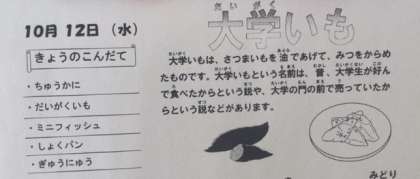 10月12日（水）
きょうのこんだて
・ちゅうかに
・だいがくいも
・ミニフィッシュ
・しょくパン
・ぎゅうにゅう
だいがく
大学いも
大学いもは、さつまいもを油であげて、みつをからめ
たものです。大学いもという名前は、昔、大学生が好ん
で食べたからという説や、大学の門の前で売っていたか
らという説などがあります。
みどり